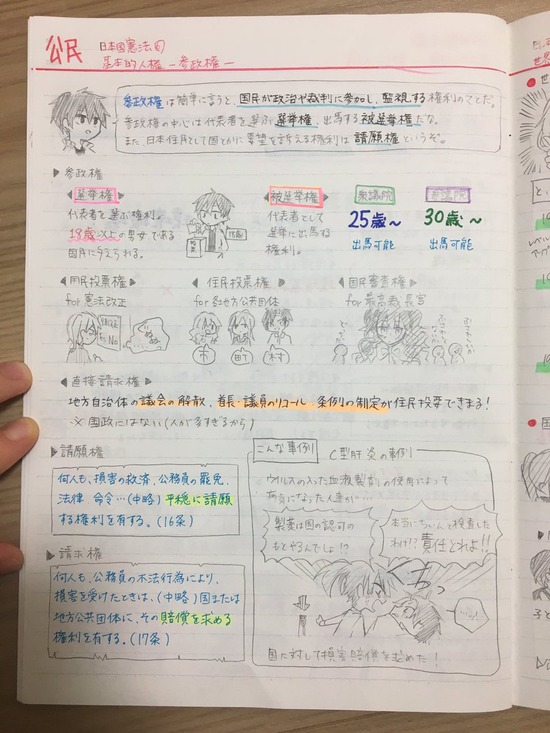 公民
日本国憲法
基本的人権 -参政権-
参政権は簡単に言うと、国民が政治や裁判に参加し、監視する権利のことだ。
参政権の中心は代表者を選ぶ選挙権、出馬する被選挙権だな。
また、日本住民として国とかに要望を訴える権利は請願権というぞ。
▶参政権
◀選挙権▶
代表者を選ぶ権利。
18歳以上の男女である
国民に与えられる。
◀被選挙権▶
代表者として
選挙に出馬する
権利。
衆議院
25歳〜
出馬可能
参議院
30歳〜
出馬可能
◀国民投票権▶
for 憲法改正
No
◀住民投票権▶
for 地方公共団体
市
町
村
◀国民審査権▶
for 最高裁長官
◀直接請求権▶
地方自治体の議会の解散、首長・議員のリコール、条例の制定が住民投票できまる!
※国政にはない(人が多すぎるから)
▶請願権
何人も、損害の救済、公務員の罷免、
法律 命令…(中略)平穏に請願
する権利を有する。(16条)
▶請求権
何人も、公務員の不法行為により、
損害を受けたときは、(中略)国または
地方公共団体に、その賠償を求める
権利を有する。(17条)
こんな事例
C型肝炎の事例
ウイルスの入った血液製剤の使用によって
病気になった人達が…
製薬は国の認可の
もとやるんでしょ!?
本当にちゃんと検査した
わけ!?責任とれよ!!
国に対して損害賠償を求めた!